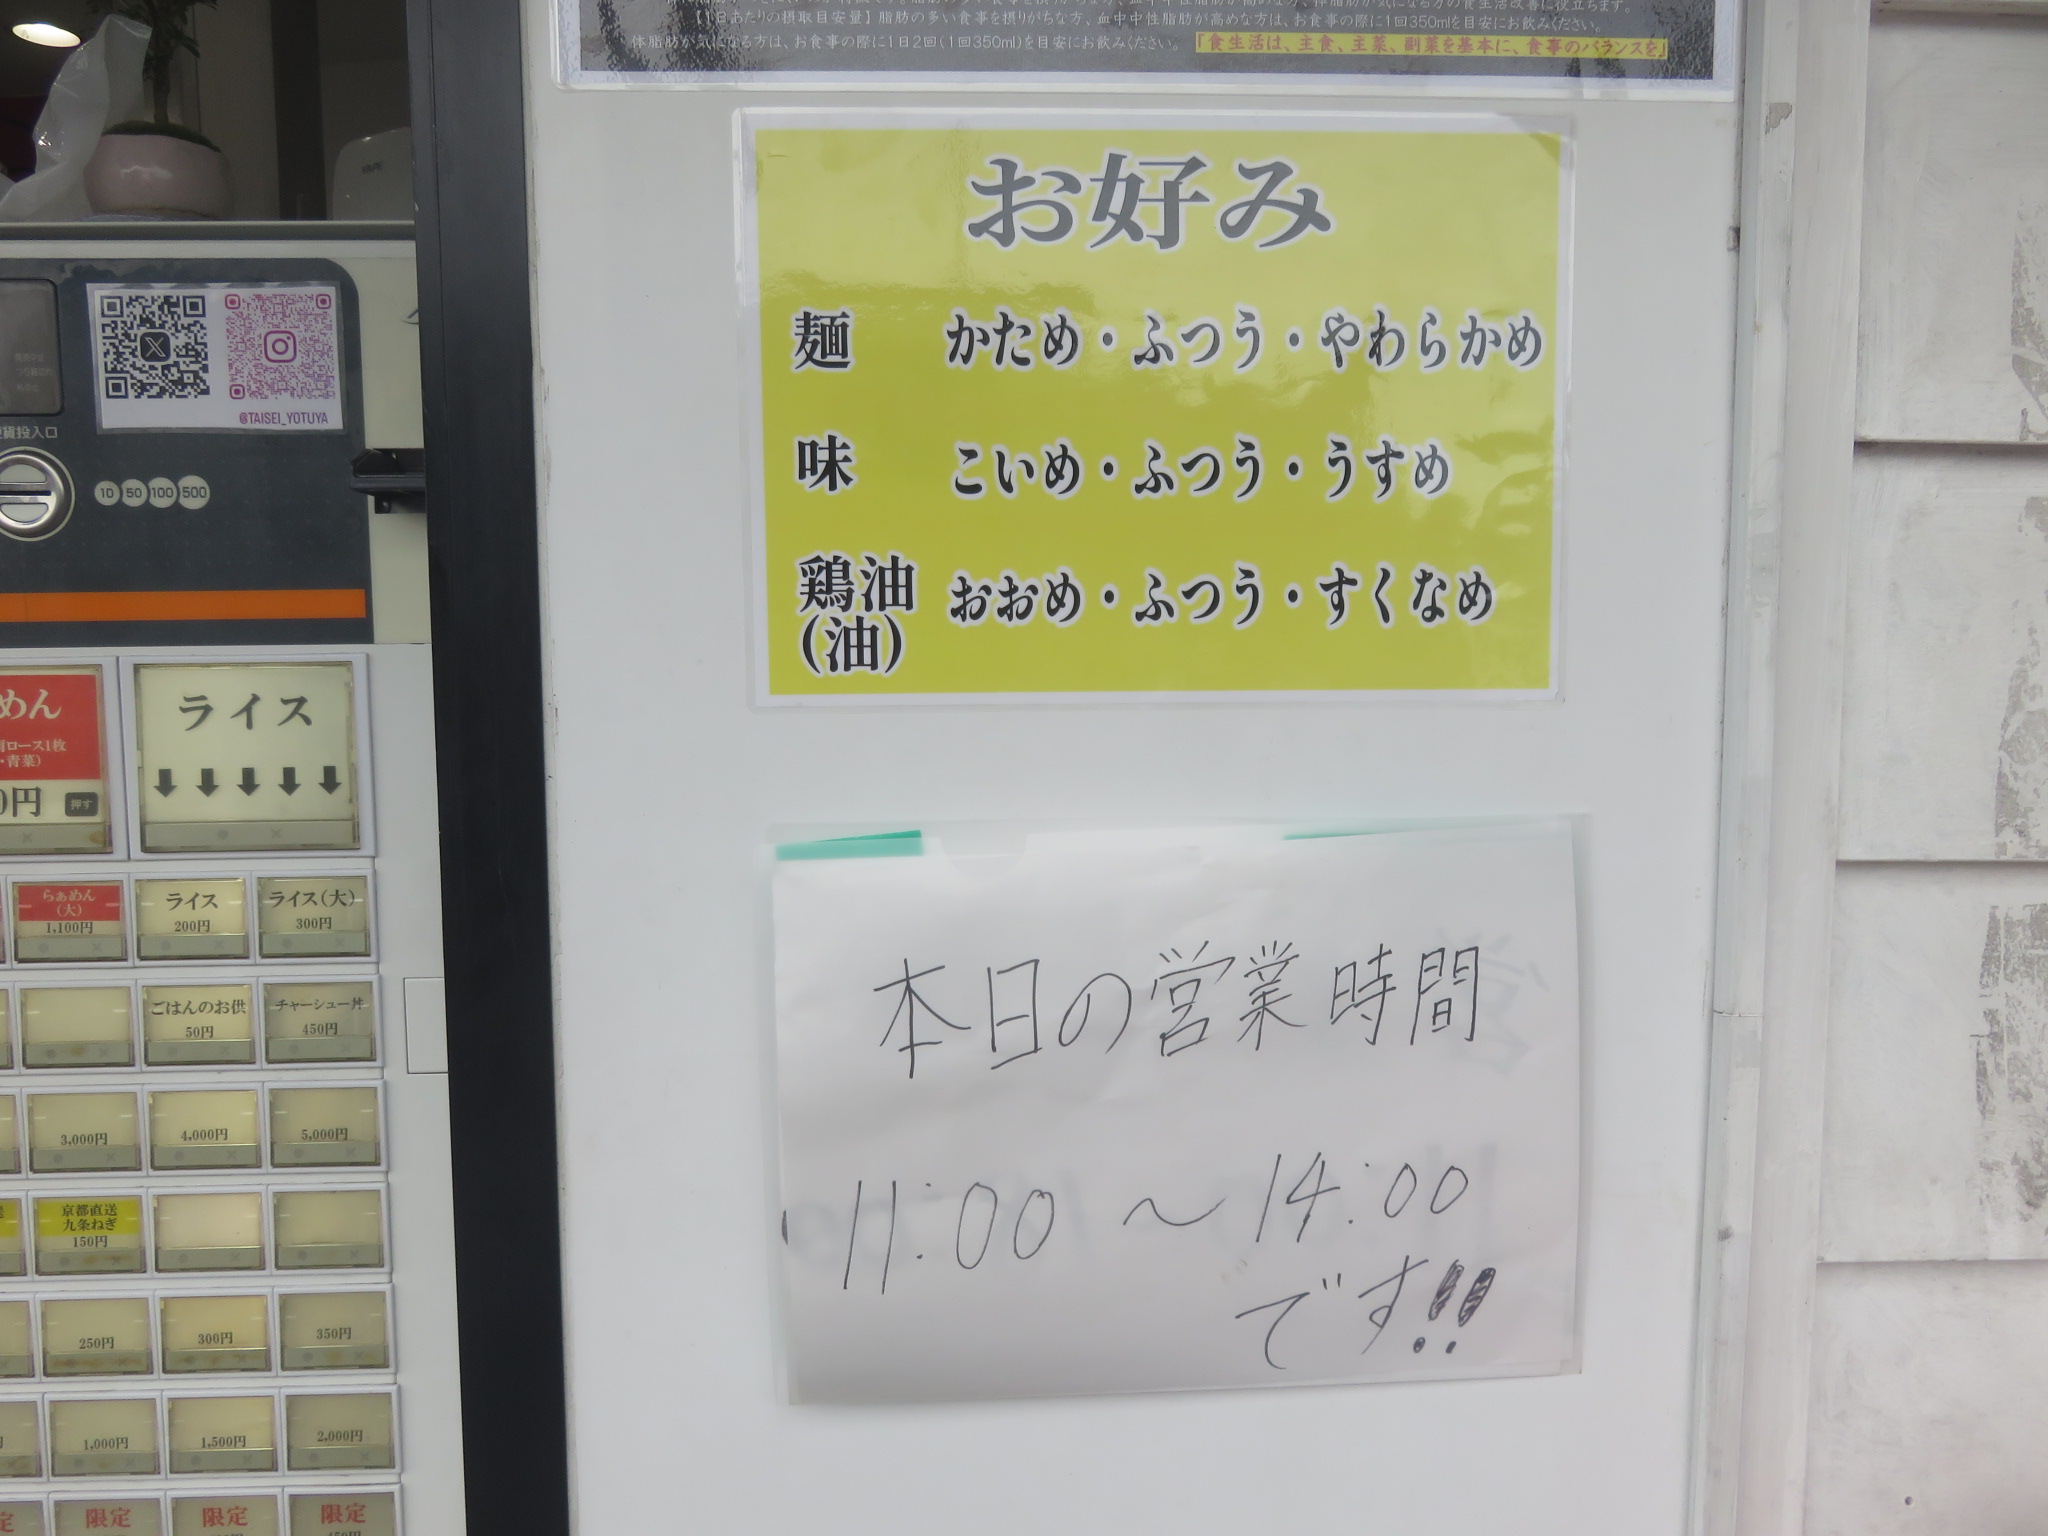 【1日あたりの摂取目安量】脂肪の多い食事を摂りがちな方、血中中性脂肪が高めな方は、お食事の際に1回350mlを目安にお飲みください。
体脂肪が気になる方は、お食事の際に1日2回(1回350ml)を目安にお飲みください。 『食生活は、主食、主菜、副菜を基本に、食事のバランスを』
お好み
麺 かため・ふつう・やわらかめ
味 こいめ・ふつう・うすめ
鶏油 おおめ・ふつう・すくなめ
(油)
本日の営業時間
11:00 〜 14:00
です!!
@TAISEI_YOTUYA
貨投入口
10 50 100 500
めん
ロース1枚
・青菜)
0円 押す
ライス
らぁめん
(大)
1,100円
ライス
200円
ライス(大)
300円
ごはんのお供
50円
チャーシュー丼
450円
3,000円
4,000円
5,000円
京都直送
九条ねぎ
150円
250円
300円
350円
1,000円
1,500円
2,000円
限定
限定
限定